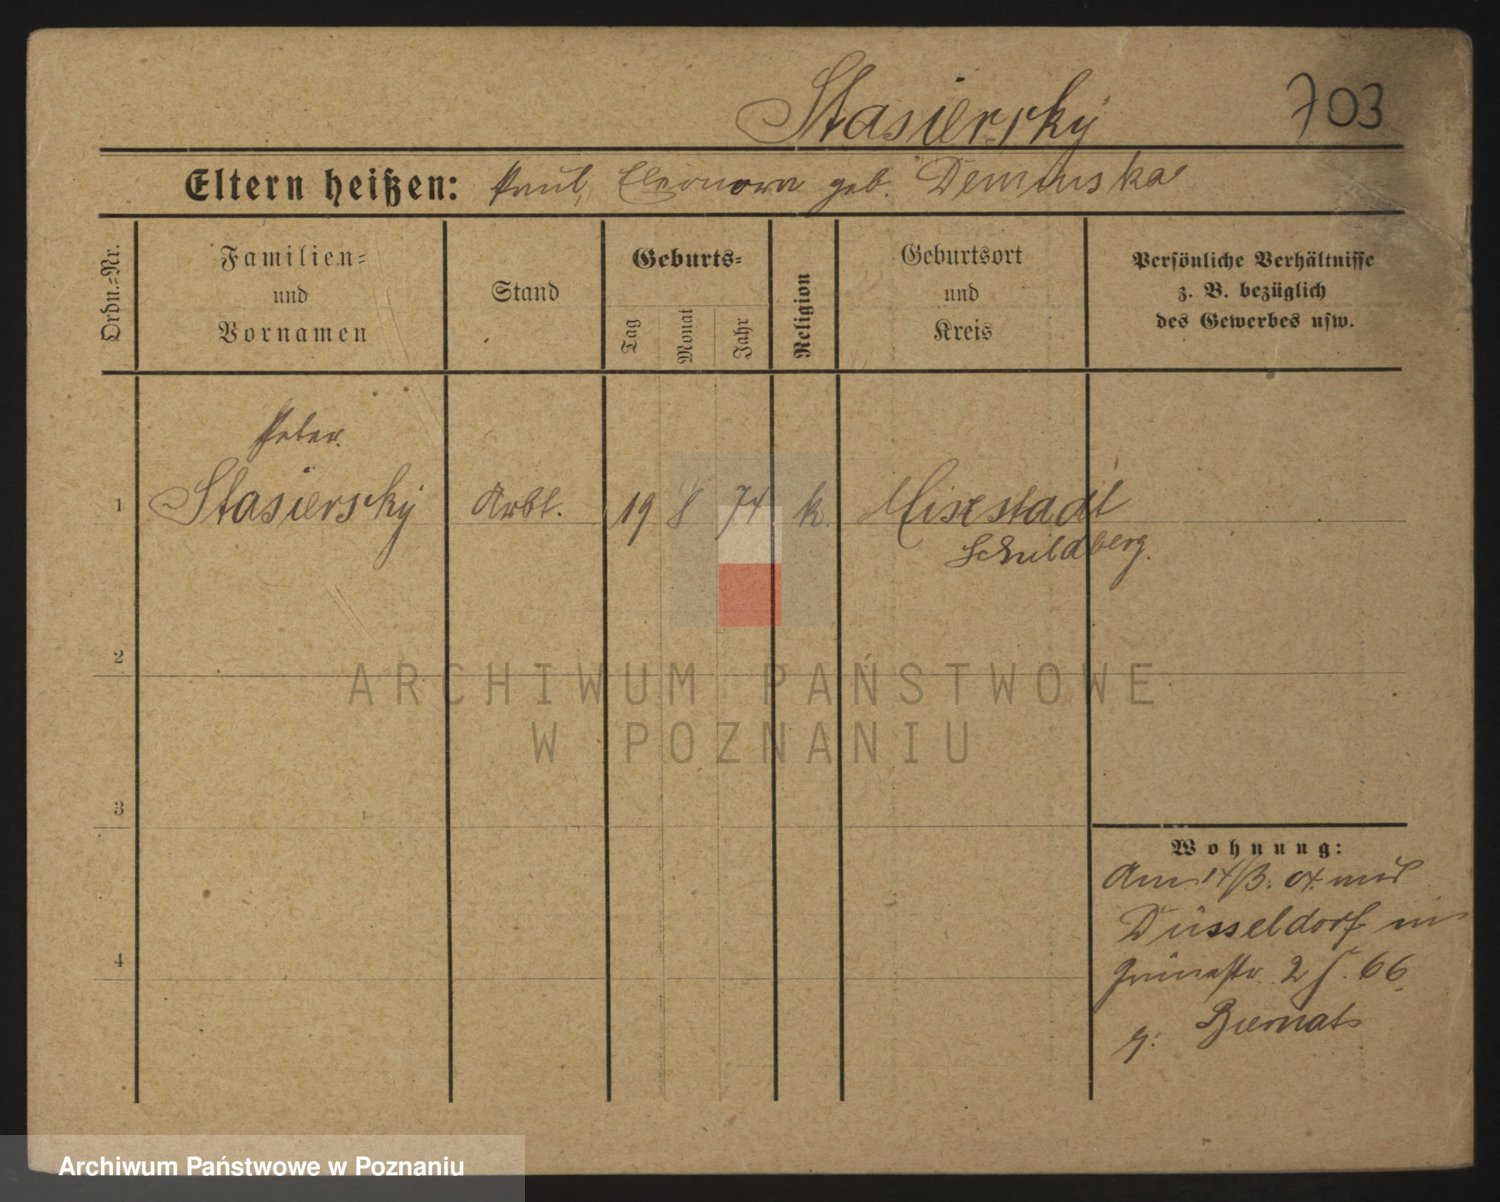 Stasierský 703
Eltern heißen: Paul, Eleonora geb. Deminska
Ordn.=Nr.
Familien=
und
Vornamen
Stand
Geburts=
Tag
Monat
Jahr
Religion
Geburtsort
und
Kreis
Persönliche Verhältnisse
z. B. bezüglich
des Gewerbes usw.
Peter
1 Stasierský Arbt. 19 8 74 k. Mixstadt
Schildberg.
2
3
4
Wohnung:
Am 14/3. 04. aus
Düsseldorf in
Grünestr. 2 66
b. Biernat
ARCHIWUM PAŃSTWOWE
W POZNANIU
Archiwum Państwowe w Poznaniu